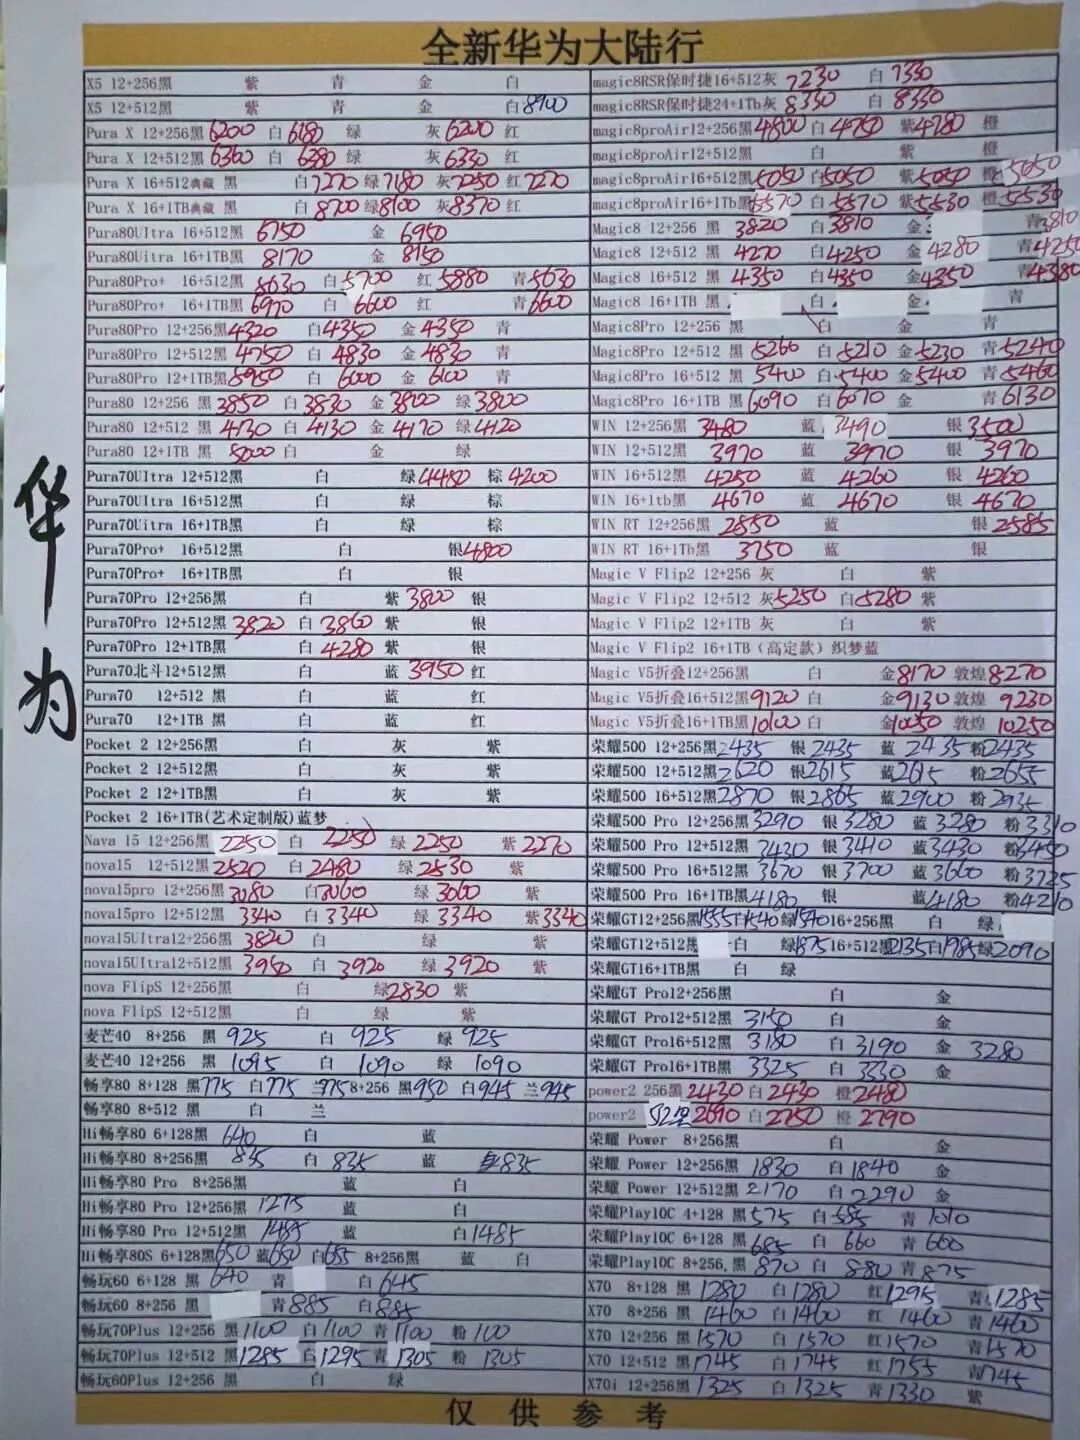 全新华为大陆行
华为
X5 12+256黑 紫 青 金 白
X5 12+512黑 紫 青 金 白8900
Pura X 12+256黑6200 白6180 绿 灰6200 红
Pura X 12+512黑6360 白6380 绿 灰6330 红
Pura X 16+512典藏 黑 白7270 绿7180 灰7250 红7270
Pura X 16+1TB典藏 黑 白8700 绿8100 灰8370 红
Pura80UItra 16+512黑 6750 金 6950
Pura80Uitra 16+1TB黑 8170 金 8150
Pura80Pro+ 16+512黑 5630 白5700 红5880 青5630
Pura80Pro+ 16+1TB黑6970 白6600 红 青6600
Pura80Pro 12+256黑4320 白4350 金4350 青
Pura80Pro 12+512黑4750 白4830 金4830 青
Pura80Pro 12+1TB黑5950 白6000 金6100 青
Pura80 12+256 黑3850 白3830 金3800 绿3800
Pura80 12+512 黑4130 白4130 金4170 绿4120
Pura80 12+1TB 黑5000 白 金 绿
Pura70UItra 12+512黑 白 绿4480 棕4200
Pura70UItra 16+512黑 白 绿 棕
Pura70Uitra 16+1TB黑 白 绿 棕
Pura70Pro+ 16+512黑 白 银4800
Pura70Pro+ 16+1TB黑 白 银
Pura70Pro 12+256黑 白 紫3800 银
Pura70Pro 12+512黑3820 白3860 紫 银
Pura70Pro 12+1TB黑 白4280 紫 银
Pura70北斗12+512黑 白 蓝3950 红
Pura70 12+512 黑 白 蓝 红
Pura70 12+1TB 黑 白 蓝 红
Pocket 2 12+256黑 白 灰 紫
Pocket 2 12+512黑 白 灰 紫
Pocket 2 12+1TB黑 白 灰 紫
Pocket 2 16+1TB(艺术定制版)蓝梦
Nava 15 12+256黑 2250 白 2250 绿2250 紫2270
nova15 12+512黑2520 白2480 绿2530 紫
nova15pro 12+256黑3080 白3060 绿3060 紫
nova15pro 12+512黑3340 白3340 绿3340 紫3340
nova15UItra12+256黑3820 白 绿 紫
nova15UItra12+512黑3950 白3920 绿3920 紫
nova FlipS 12+256黑 白 绿2830 紫
nova FlipS 12+512黑 白 绿 紫
麦芒40 8+256 黑925 白925 绿925
麦芒40 12+256 黑1095 白1090 绿1090
畅享80 8+128 黑775 白775 兰775 8+256 黑950 白945 兰945
畅享80 8+512 黑 白 兰
Hi畅享80 6+128黑 640 白 蓝
Hi畅享80 8+256黑 835 白835 蓝 835
Hi畅享80 Pro 8+256黑 蓝 白
Hi畅享80 Pro 12+256黑1275 蓝 白
Hi畅享80 Pro 12+512黑1485 蓝 白1485
Hi畅享80S 6+128黑650 蓝650 白655 8+256黑 蓝 白
畅玩60 6+128 黑 640 青 白645
畅玩60 8+256 黑 青885 白885
畅玩70Plus 12+256 黑1100 白1100 青1100 粉1100
畅玩70Plus 12+512 黑1285 白1295 青1305 粉1305
畅玩60Plus 12+256 黑 白 绿
magic8RSR保时捷16+512灰 7230 白7330
magic8RSR保时捷24+1Tb灰 8330 白8330
magic8proAir12+256黑4800 白4750 紫4780 橙
magic8proAir12+512黑 白 紫 橙
magic8proAir16+512黑5050 白5050 紫5050 橙5050
magic8proAir16+1Tb黑5570 白5570 紫5530 橙5530
Magic8 12+256 黑 3820 白3810 金 青3810
Magic8 12+512 黑 4270 白4250 金4280 青4250
Magic8 16+512 黑 4350 白4350 金4350 青4380
Magic8 16+1TB 黑 白 金 青
Magic8Pro 12+256 黑 白 金 青
Magic8Pro 12+512 黑5260 白5210 金5230 青5240
Magic8Pro 16+512 黑5400 白5400 金5400 青5460
Magic8Pro 16+1TB 黑6090 白6070 金 青6130
WIN 12+256黑 3480 蓝 3490 银3500
WIN 12+512黑 3970 蓝 3970 银 3970
WIN 16+512黑 4250 蓝 4260 银 4260
WIN 16+1tb黑 4670 蓝 4670 银 4670
WIN RT 12+256黑2850 蓝 银2585
WIN RT 16+1Tb黑 3750 蓝 银
Magic V Flip2 12+256 灰 白 紫
Magic V Flip2 12+512 灰5250 白5280 紫
Magic V Flip2 12+1TB 灰 白 紫
Magic V Flip2 16+1TB（高定款）织梦蓝
Magic V5折叠12+256黑 白 金8170 敦煌8270
Magic V5折叠16+512黑9120 白 金9130 敦煌 9230
Magic V5折叠16+1TB黑10100 白 金10050 敦煌 10250
荣耀500 12+256黑2435 银2435 蓝2435 粉2435
荣耀500 12+512黑2620 银2615 蓝2615 粉2655
荣耀500 16+512黑2870 银2865 蓝2900 粉2935
荣耀500 Pro 12+256黑3290 银3280 蓝3280 粉3310
荣耀500 Pro 12+512黑3430 银3410 蓝3430 粉3450
荣耀500 Pro 16+512黑3670 银3700 蓝3660 粉3725
荣耀500 Pro 16+1TB黑4180 银 蓝4180 粉4210
荣耀GT12+256黑1555白1540绿1540 16+256黑 白 绿
荣耀GT12+512黑 白 绿1875 16+512黑2135白1985绿2090
荣耀GT16+1TB黑 白 绿
荣耀GT Pro12+256黑 白 金
荣耀GT Pro12+512黑 3150 白 金
荣耀GT Pro16+512黑 3180 白3190 金 3280
荣耀GT Pro16+1TB黑 3325 白3330 金
power2 256黑2430 白2430 橙2480
power2 512黑2690 白2750 橙2790
荣耀 Power 8+256黑 白 金
荣耀 Power 12+256黑 1830 白1840 金
荣耀 Power 12+512黑2170 白2290 金
荣耀Play10C 4+128 黑575 白585 青1010
荣耀Play10C 6+128 黑685 白 660 青660
荣耀Play10C 8+256,黑 870 白 880 青875
X70 8+128 黑1280 白1280 红1295 青1285
X70 8+256 黑1460 白1460 红1460 青1460
X70 12+256 黑1570 白1570 红1570 青1570
X70 12+512 黑1745 白1745 红1755 青1745
X70i 12+256黑1325 白1325 青1330 紫
仅供参考